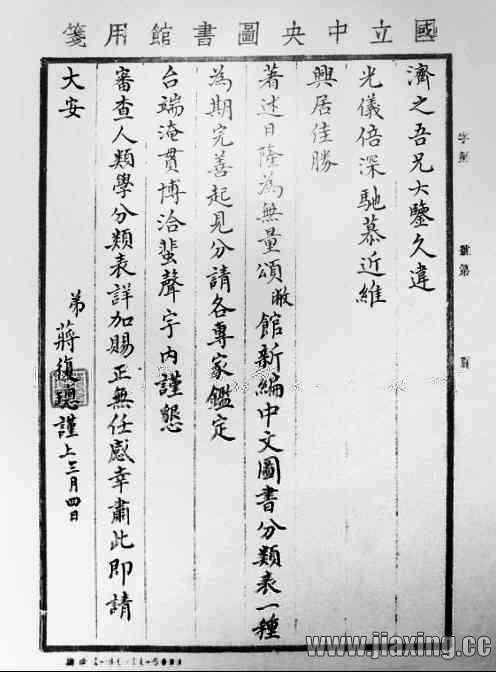 國立中央圖書館用箋
濟之吾兄大鑒久違
光儀倍深馳慕近維
興居佳勝
著述日隆為無量頌敝館新編中文圖書分類表一種
為期完善起見分請各專家鑑定
台端淹貫博洽蜚聲宇內謹懇
審查人類學分類表詳加賜正無任感幸肅此即請
大安
弟蔣復璁謹上三月四日
字第
號第
頁
www.jiaxing.cc